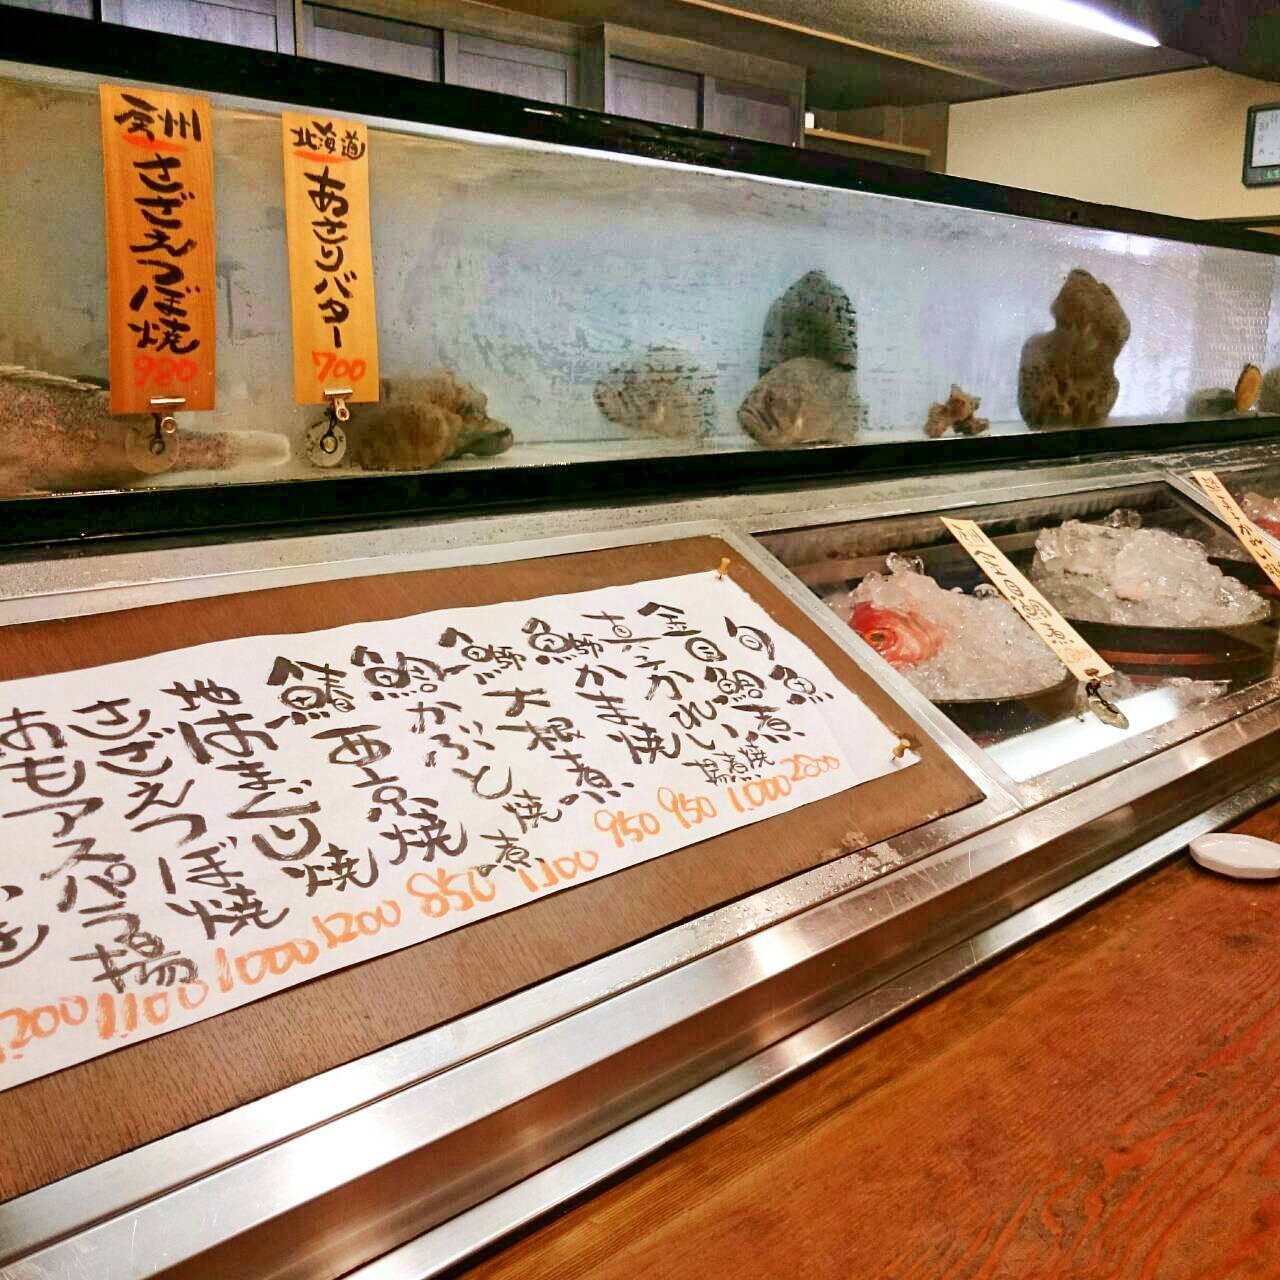 房州
さざえつぼ焼
980
北海道
あさりバター
700
旬魚
金目鯛煮 焼 2800
真子かれい 煮 揚 1,000
鰤かま焼 950
鰤大根煮 950
鯛かぶと焼 煮 1,100
鰆西京焼 850
地はまぐり焼 1200
さざえつぼ焼 1000
おもアスパラ揚 1100
1200